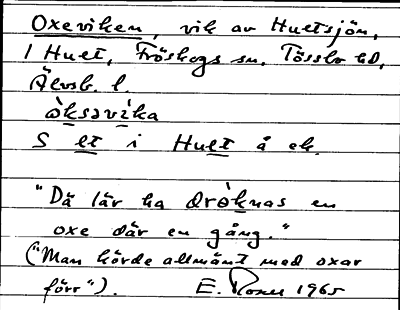 Oxeviken, vik av Huetsjön,
1 Huet, Fröskogs sn, Tössbo hd,
Älvsb. l.
ὰksəvìka
S et i Huet å ek.
"Då lär ha dròknas en
oxe där en gång."
("Man körde allmänt med oxar
förr"). E. 1965